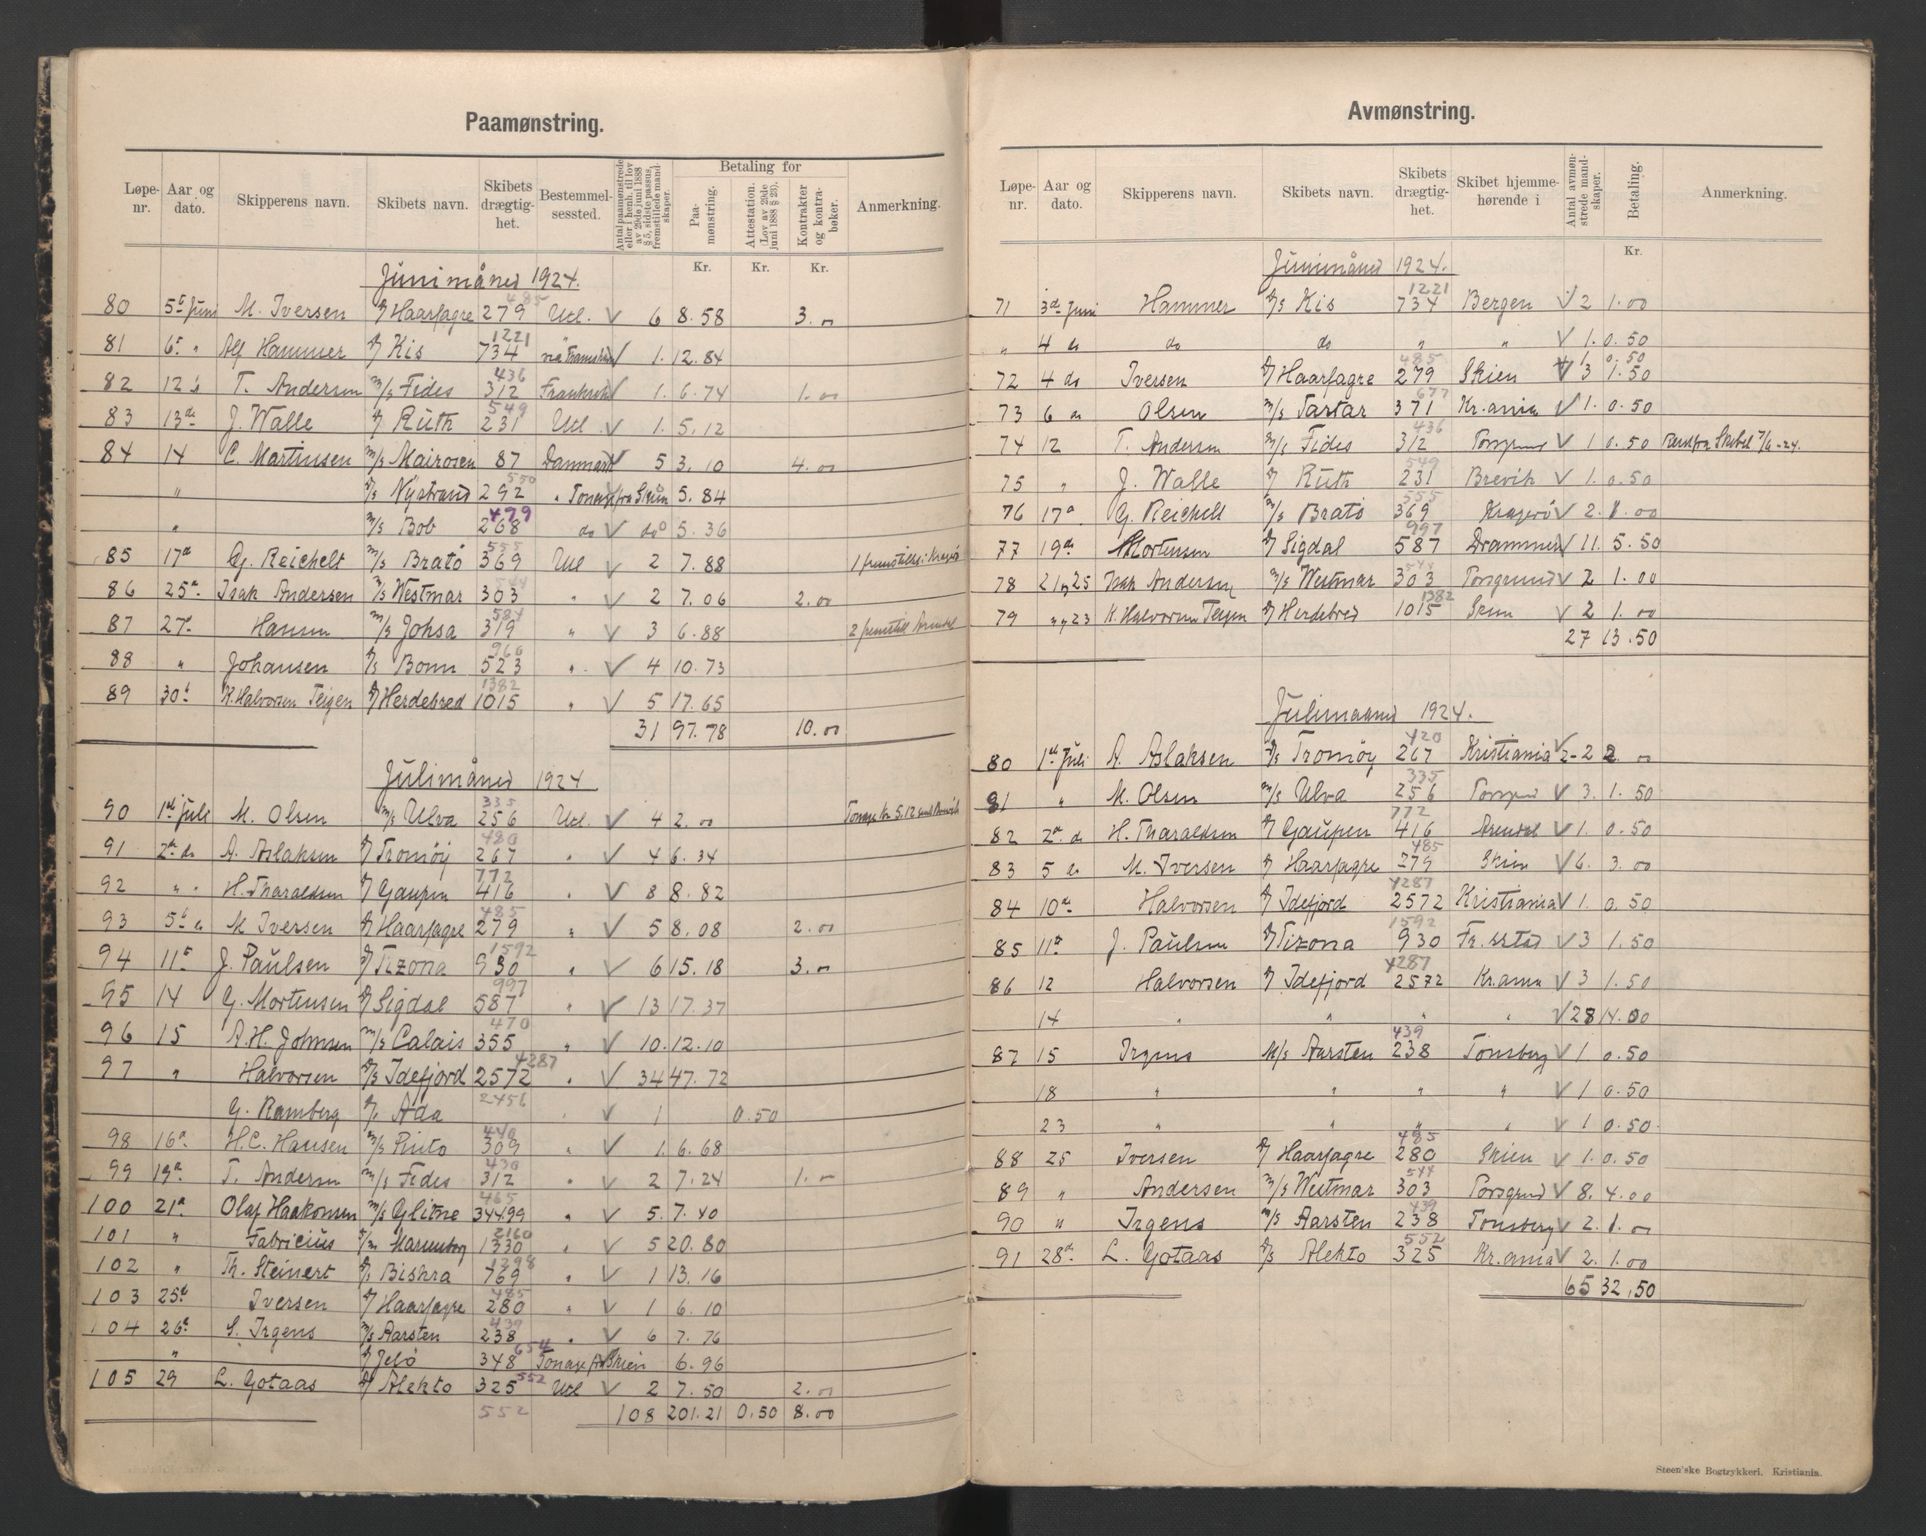 Paamønstring.
Løpe-nr. Aar og dato. Skipperens navn. Skibets navn. Skibets drægtig-het. Bestemmel-sessted. Antal paamønstrede eller henh. til lov av 29de juni 1888 § 5, sidste passus, fremstillede mand-skaper. Betaling for Paa-mønstring. Attestation. (Lov av 29de juni 1888 § 23). Kontrakter og kontra-bøker. Anmerkning.
Kr. Kr. Kr.
Junimåned 1924.
80 5t Juni M. Iversen Haarfagre 279 485 Utl. V 6 8.58 3.00
81 6t " Alf Hammer Kis 734 1221 V 1. 12.84
82 12 T. Andersen m/s Fides 312 436 V 1. 6.74 1.00
83 13de J. Walle Ruth 231 549 Utl. V 1. 5.12
84 14 C. Martinsen m/s Mairosen 87 Danmark V 5 3.10 4.00
" Nystrand 292 550 " Tonage fra Skien 5.84
" m/s Bob 268 479 do V do 5.36
85 17d G. Reichelt m/s Bratö 369 555 Utl V 2 7.88
86 25d Isak Andersen m/s Westmar 303 544 " V 2 7.06 2.00
87 27d Hansen m/s Johsa 319 584 " V 3 6.88
88 " Johansen Bonn 523 966 " V 4 10.73
89 30t K. Halvorsen Teigen Herdebred 1015 1382 " V 5 17.65
31 97.78 10.00
Julimåned 1924
90 1st Juli M. Olsen m/s Ulva 256 335 Utl. V 4 2.00
91 2n do A. Aslaksen Tromöy 267 420 " V 4 6.34
92 " " H. Tharaldsen Gaupen 416 772 " V 8 8.82
93 5t M Iversen Haarfagre 279 485 " V 5 8.08 2.00
94 11t J. Paulsen Tizona 930 1592 " V 6 15.18 3.00
95 14 G. Mortensen Sigdal 587 997 " V 13 17.37
96 15 A.H. Johnsen m/s Calais 355 470 " V 10. 12.10
97 " Halvorsen Idefjord 2572 4287 " V 34 47.72
G. Ramberg Ada 2456 " V 1 0.50
98 16d H.C. Hansen m/s Pinto 309 440 " V 1. 6.68
99 19d T. Andersen m/s Fides 312 436 " V 2 7.24 1.00
100 21d Olaf Haakonsen m/s Glitne 34499 465 " V 5. 7.40
101 " Fabricius 1330 2160 " V 5 20.80
102 " Th. Steinert Biskra 769 1298 " V 1 13.16
103 25d Iversen Haarfagre 280 485 " V 1 6.10
104 26d S. Irgens m/s Aarsten 238 439 " V 6 7.76
" Jelö 348 654 Tonage fra Skien 6.96
105 29 L. Gotaas Alekto 325 552 Utl V 2 7.50 2.00
552 108 201.21 0.50 8.00
Avmønstring.
Løpe-nr. Aar og dato. Skipperens navn. Skibets navn. Skibets drægtig-het. Skibet hjemme-hørende i Antal avmøn-strede mand-skaper. Betaling. Anmerkning.
Kr.
Junimåned 1924.
71 3d Juni Hammer Kis 734 1221 Bergen V 2 1.00
" 4 do do do " " V 1. 0.50
72 4 do Iversen Haarfagre 279 485 Skien V 3 1.50 1 0.50
73 6 Olsen m/s Tartar 371 677 Kr.ania V 1. 0.50
74 12 T. Andersen m/s Fides 312 436 Porsgrund V 1 0.50
75 " J. Walle Ruth 231 549 Brevik V 1. 0.50
76 17d G. Reichelt m/s Bratö 369 555 Kragerö V 2. 1.00
77 19d Mortensen Sigdal 587 997 Drammen V 11. 5.50
78 21 og 25 Isak Andersen m/s Westmar 303 544 Porsgrund V 2 1.00
79 " og 23 K. Halvorsen Teigen Herdebred 1015 1382 Skien V 2 1.00
27 13.50
Julimaaned 1924.
80 1st Juli A. Aslaksen Tromöy 267 420 Kristiania V 2-2 2.00
81 " M. Olsen m/s Ulva 256 335 Porsgrund V 3. 1.50
82 2n d H. Tharaldsen Gaupen 416 772 Arendal V 1. 0.50
83 5 M. Iversen Haarfagre 279 485 Skien V 6. 3.00
84 10d Halvorsen Idefjord 2572 4287 Kristiania V 1. 0.50
85 11t J. Paulsen Tizona 930 1592 Fr.stad V 3 1.50
86 12 Halvorsen Idefjord 2572 4287 Kr.ania V 3 1.50
14 " " " " V 28 14.00
87 15 Irgens M/s Aarsten 238 439 Tönsberg V 1 0.50
18 " " " " V 1 0.50
23 " " " " V 1 0.50
88 25 Iversen Haarfagre 280 485 Skien V 1. 0.50
89 " Andersen m/s Westmar 303 544 Porsgrund V 8. 4.00
90 " Irgens m/s Aarsten 238 439 Tönsberg V 2. 1.00
91 28d L. Gotaas Alekto 325 552 Kr.ania V 2. 1.00
65 32.50
Steen'ske Bogtrykkeri. Kristiania.